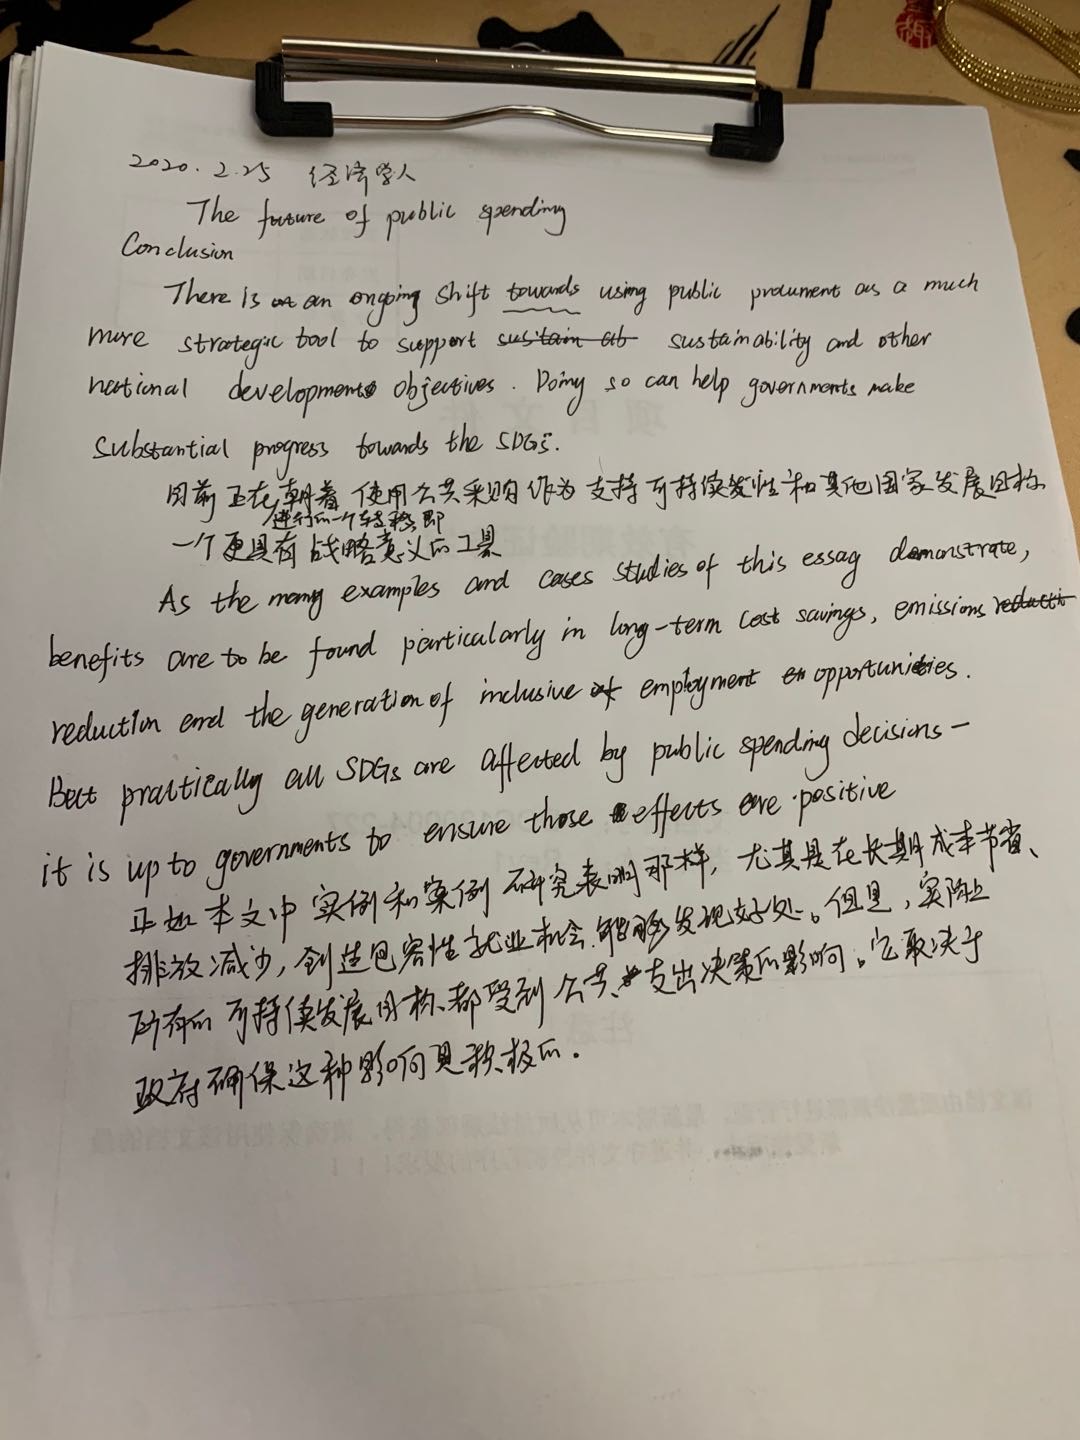 2020.2.25 经济学人
The future of public spending
Conclusion
There is an ongoing shift towards using public procument as a much
more strategic tool to support sustainability and other
national development objectives. Doing so can help governments make
substantial progress towards the SDGs.
目前正在朝着使用公共采购作为支持可持续发性和其他国家发展目标
进行的一个转移,即
一个更具有战略意义的工具
As the many examples and cases studies of this essay demonstrate,
benefits are to be found particularly in long-term cost savings, emissions
reduction and the generation of inclusive employment opportunities.
But practically all SDGs are affected by public spending decisions –
it is up to governments to ensure those effects are positive
正如本文中实例和案例研究表明那样,尤其是在长期成本节省、
排放减少,创造包容性就业机会能够发现好处。但是,实际上
所有的可持续发展目标都受到公共支出决策的影响。它取决于
政府确保这种影响是积极的.
项目文件